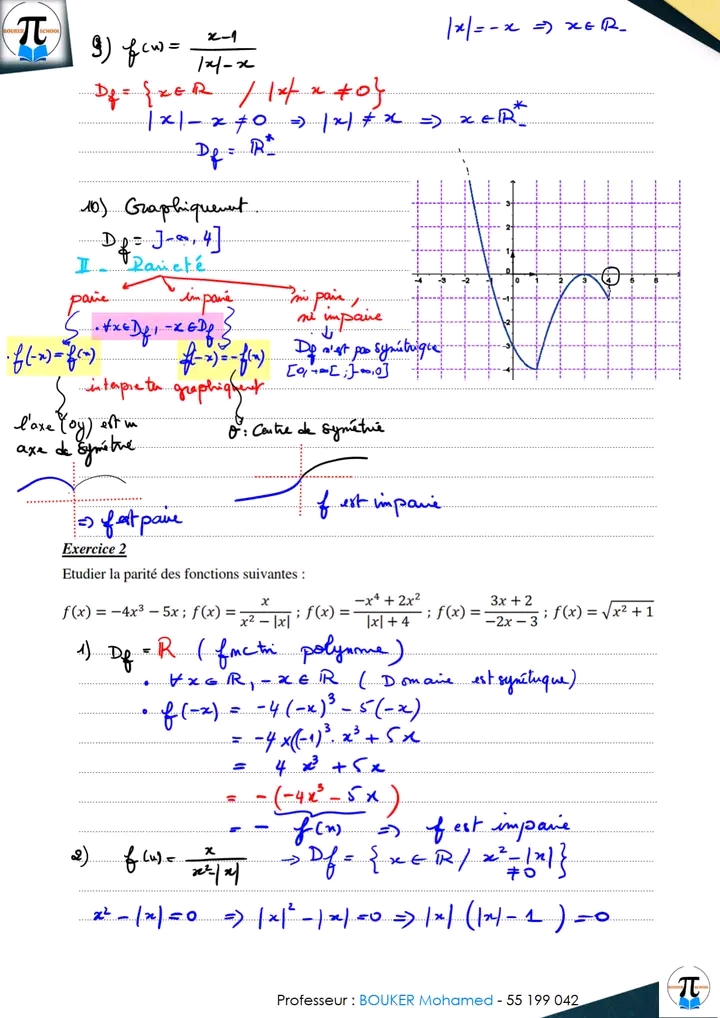 π
BOUKER SCHOOL
|x| = -x ⇒ x ∈ ℝ₋
9) f(x) = (x-1)/(|x|-x)
Df = {x ∈ ℝ / |x|- x ≠ 0}
|x| - x ≠ 0 ⇒ |x| ≠ x ⇒ x ∈ ℝ₋*
Df = ℝ₋*
10) Graphiquement.
Df = ]-∞, 4]
II - Parieté
paire impaire ni paire, ni impaire
. ∀x∈Df, -x∈Df
. f(-x) = f(x) f(-x) = -f(x)
Df n'est pas symétrique
[0, +∞[ ; ]-∞, 0]
interpreter graphiquemt
l'axe (oy) est un
axe de symétrie
O : Centre de symétrie
⇒ f est paire
f est impaire
-4 -3 -2 -1 0 1 2 3 4 5 6
3
2
1
0
-1
-2
-3
-4
Exercice 2
Etudier la parité des fonctions suivantes :
f(x) = −4x³ − 5x ; f(x) = x/(x² − |x|) ; f(x) = (−x⁴ + 2x²)/(|x| + 4) ; f(x) = (3x + 2)/(−2x − 3) ; f(x) = √(x² + 1)
1) Df = ℝ (fnctn polynome)
. ∀ x ∈ ℝ, - x ∈ ℝ (Domaine est symétrique)
. f(-x) = -4(-x)³ - 5(-x)
= -4 x (-1)³. x³ + 5x
= 4 x³ + 5x
= - (-4x³ - 5x)
= - f(x) ⇒ f est impaire
2) f(x) = x/(x²-|x|) → Df = {x ∈ ℝ / x² - |x| ≠ 0}
x² - |x| = 0 ⇒ |x|² - |x| = 0 ⇒ |x| (|x| - 1) = 0
Professeur : BOUKER Mohamed - 55 199 042
π
BOUKER SCHOOL